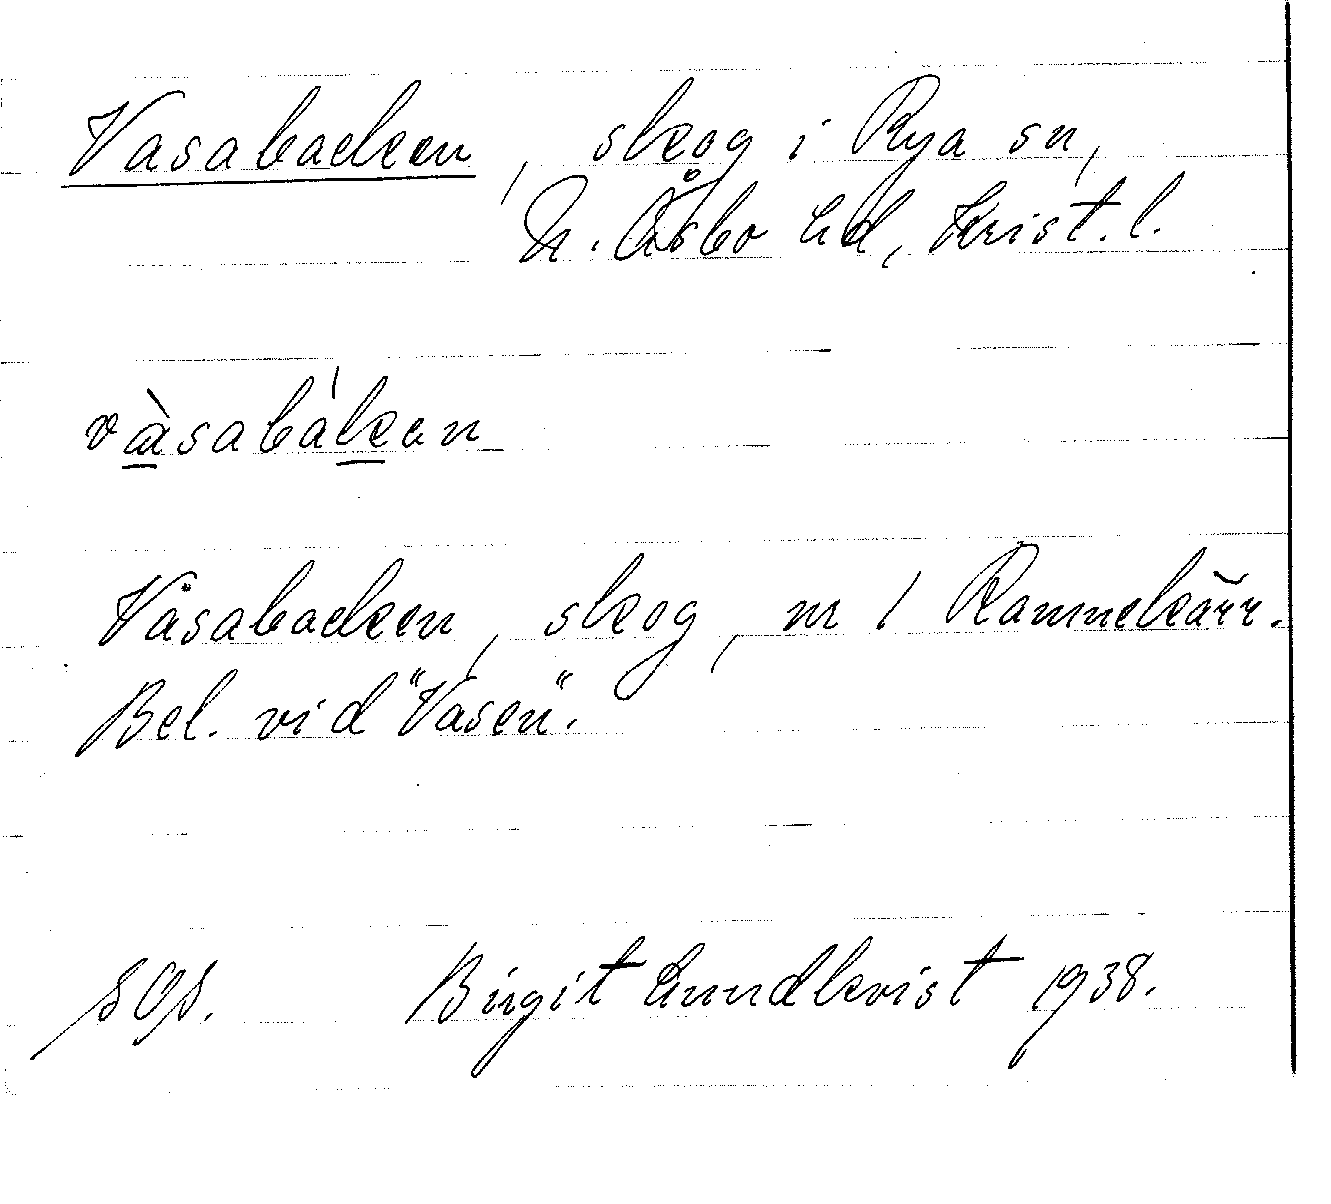 Vasabacken, skog i Rya sn,
N. Åsbo hd, Krist. l.
và̱sabák̲an
Våsabacken, skog, nr 1 Rammekärr.
Bel. vid "Vasen".
Birgit Lundkvist 1938.